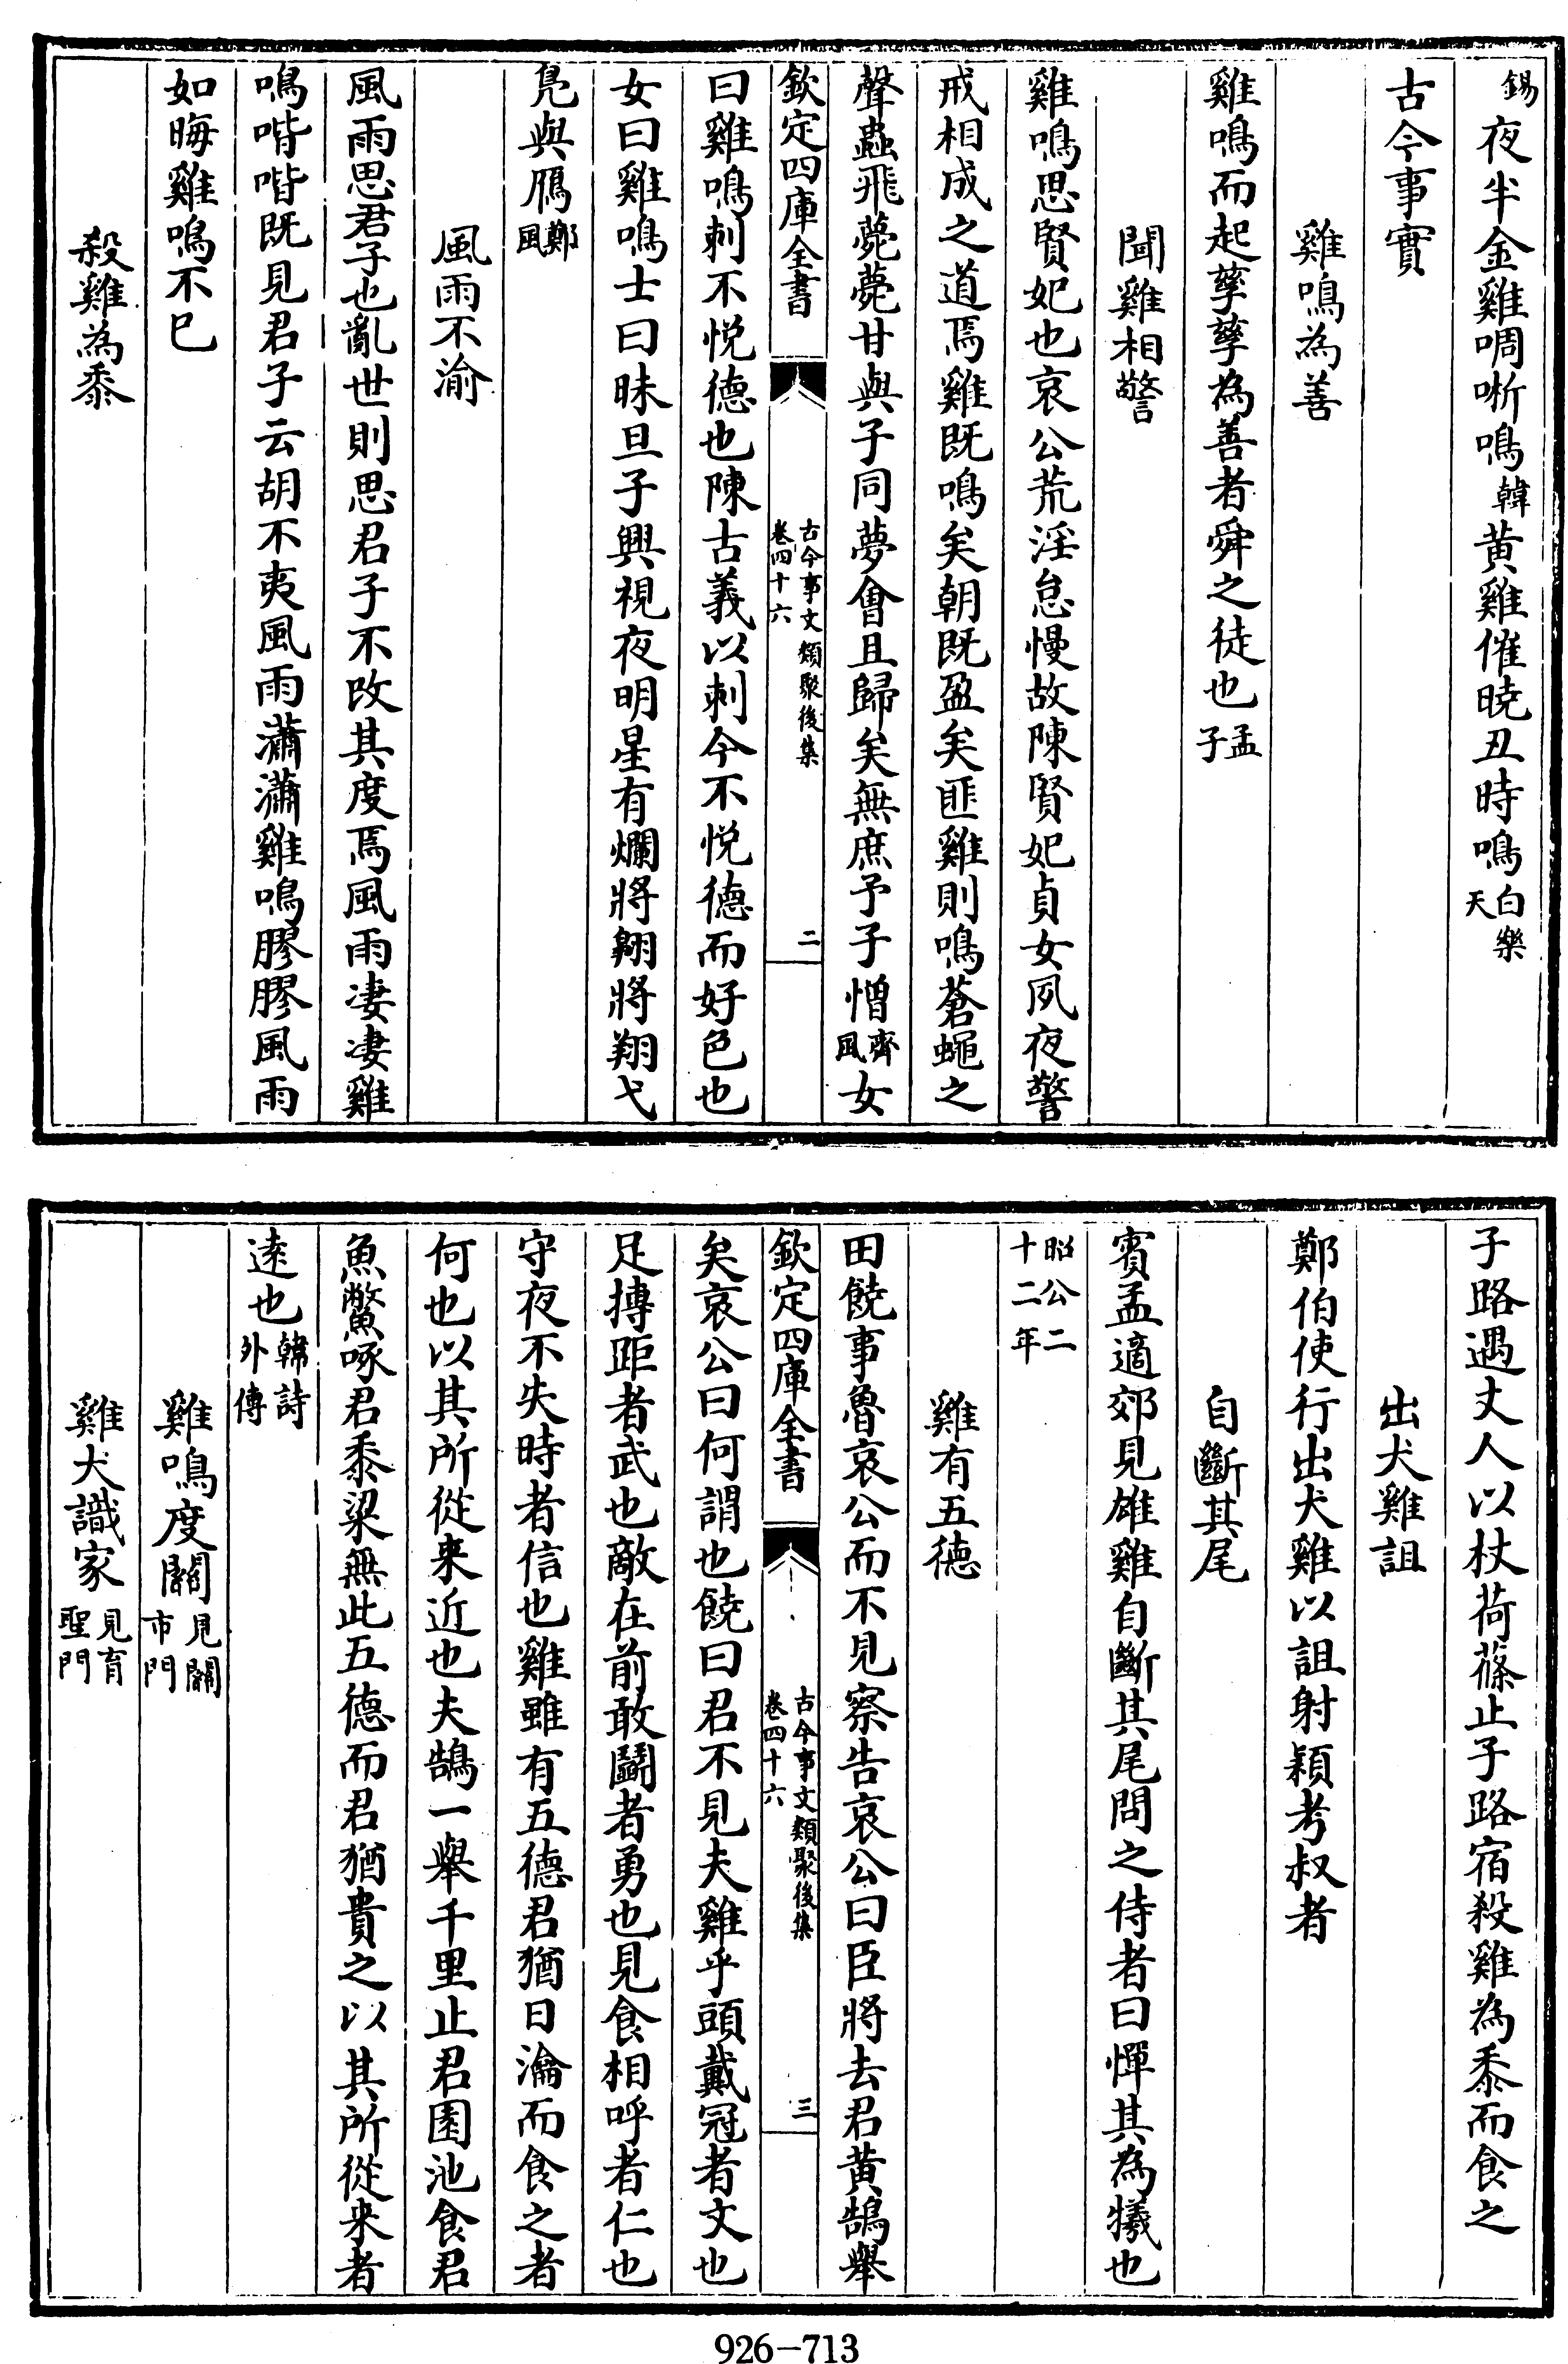 錫夜半金雞啁哳鳴韓黃雞催曉丑時鳴白樂天
古今事實
雞鳴為善
雞鳴而起孳孳為善者舜之徒也孟子
聞雞相警
雞鳴思賢妃也哀公荒淫怠慢故陳賢妃貞女夙夜警
戒相成之道焉雞既鳴矣朝既盈矣匪雞則鳴蒼蠅之
聲蟲飛薨薨甘與子同夢會且歸矣無庶予子憎齊風女
欽定四庫全書
古今事文類聚後集
卷四十六
二
曰雞鳴刺不悦德也陳古義以刺今不悦德而好色也
女曰雞鳴士曰昧旦子興視夜明星有爛將翱將翔弋
鳧與鴈鄭風
風雨不渝
風雨思君子也亂世則思君子不改其度焉風雨凄凄雞
鳴喈喈既見君子云胡不夷風雨瀟瀟雞鳴膠膠風雨
如晦雞鳴不已
殺雞為黍
子路遇丈人以杖荷蓧止子路宿殺雞為黍而食之
出犬雞詛
鄭伯使行出犬雞以詛射穎考叔者
自斷其尾
賓孟適郊見雄雞自斷其尾問之侍者曰憚其為犧也
昭公二十二年
雞有五德
田饒事魯哀公而不見察告哀公曰臣將去君黃鵠舉
欽定四庫全書
古今事文類聚後集
卷四十六
三
矣哀公曰何謂也饒曰君不見夫雞乎頭戴冠者文也
足搏距者武也敵在前敢鬬者勇也見食相呼者仁也
守夜不失時者信也雞雖有五德君猶日瀹而食之者
何也以其所從来近也夫鵠一舉千里止君園池食君
魚鱉啄君黍梁無此五德而君猶貴之以其所從来者
逺也韓詩外傳
雞鳴度關見關市門
雞犬識家見育聖門
926-713